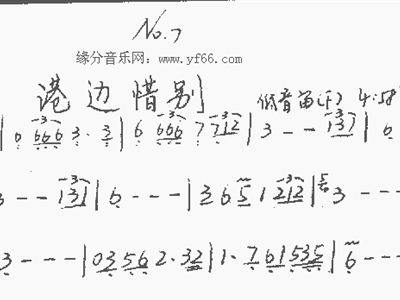 No.7
缘分音乐网：www.yf66.com
港边惜别
低音笛(F) 4:58
| 0 666 3· 3 | 6 666 7 712 | 3 - - 137 | 6
3 - - 131 | 6 - - - | 3 6 5 1 212 | 3 - - -
3 - - - | 03 56 2· 32 | 1· 7 61 535 | 6 - - -